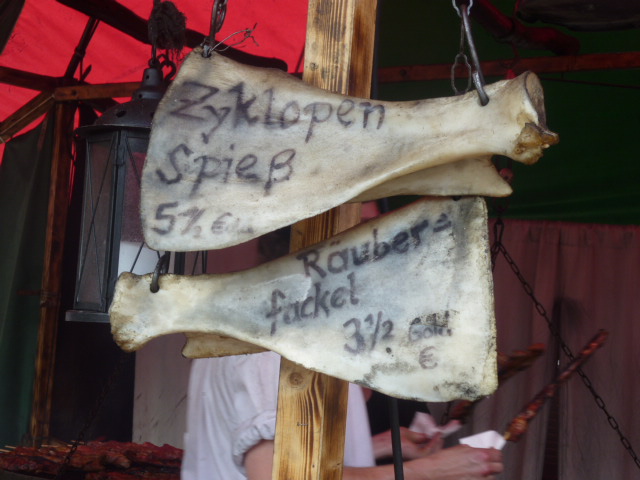 Zyklopen
Spieß
5½ €
Räuber=
fackel
3½
€